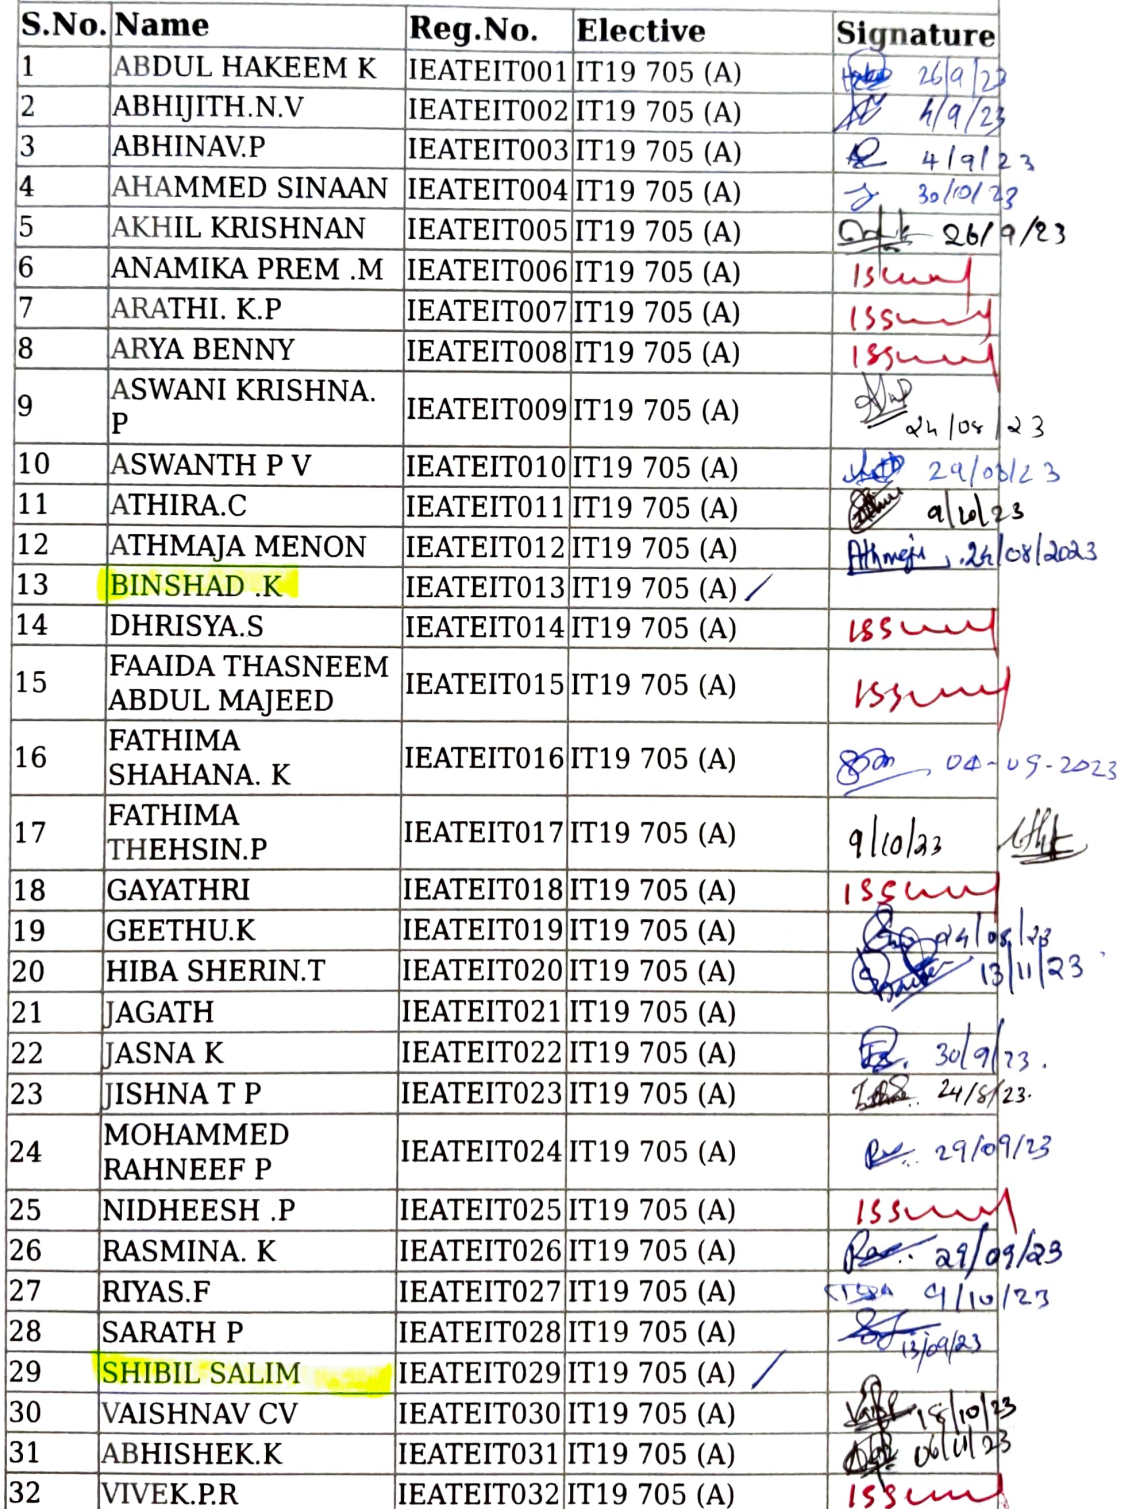 S.No. Name Reg.No. Elective Signature
1 ABDUL HAKEEM K IEATEIT001 IT19 705 (A) 26/9/23
2 ABHIJITH.N.V IEATEIT002 IT19 705 (A) 4/9/23
3 ABHINAV.P IEATEIT003 IT19 705 (A) 4/9/23
4 AHAMMED SINAAN IEATEIT004 IT19 705 (A) 30/10/23
5 AKHIL KRISHNAN IEATEIT005 IT19 705 (A) 26/9/23
6 ANAMIKA PREM .M IEATEIT006 IT19 705 (A) Issued
7 ARATHI. K.P IEATEIT007 IT19 705 (A) Issued
8 ARYA BENNY IEATEIT008 IT19 705 (A) Issued
9 ASWANI KRISHNA.
P IEATEIT009 IT19 705 (A) 24/08/23
10 ASWANTH P V IEATEIT010 IT19 705 (A) 29/08/23
11 ATHIRA.C IEATEIT011 IT19 705 (A) 9/10/23
12 ATHMAJA MENON IEATEIT012 IT19 705 (A) Athmaja 24/08/2023
13 BINSHAD .K IEATEIT013 IT19 705 (A)
14 DHRISYA.S IEATEIT014 IT19 705 (A) Issued
15 FAAIDA THASNEEM
ABDUL MAJEED IEATEIT015 IT19 705 (A) Issued
16 FATHIMA
SHAHANA. K IEATEIT016 IT19 705 (A) 04-09-2023
17 FATHIMA
THEHSIN.P IEATEIT017 IT19 705 (A) 9/10/23
18 GAYATHRI IEATEIT018 IT19 705 (A) Issued
19 GEETHU.K IEATEIT019 IT19 705 (A) 24/08/23
20 HIBA SHERIN.T IEATEIT020 IT19 705 (A) 13/11/23
21 JAGATH IEATEIT021 IT19 705 (A)
22 JASNA K IEATEIT022 IT19 705 (A) 30/9/23.
23 JISHNA T P IEATEIT023 IT19 705 (A) 24/8/23.
24 MOHAMMED
RAHNEEF P IEATEIT024 IT19 705 (A) 29/09/23
25 NIDHEESH .P IEATEIT025 IT19 705 (A) Issued
26 RASMINA. K IEATEIT026 IT19 705 (A) 29/09/23
27 RIYAS.F IEATEIT027 IT19 705 (A) 9/10/23
28 SARATH P IEATEIT028 IT19 705 (A) 13/09/23
29 SHIBIL SALIM IEATEIT029 IT19 705 (A)
30 VAISHNAV CV IEATEIT030 IT19 705 (A) 18/10/23
31 ABHISHEK.K IEATEIT031 IT19 705 (A) 06/11/23
32 VIVEK.P.R IEATEIT032 IT19 705 (A) Issued